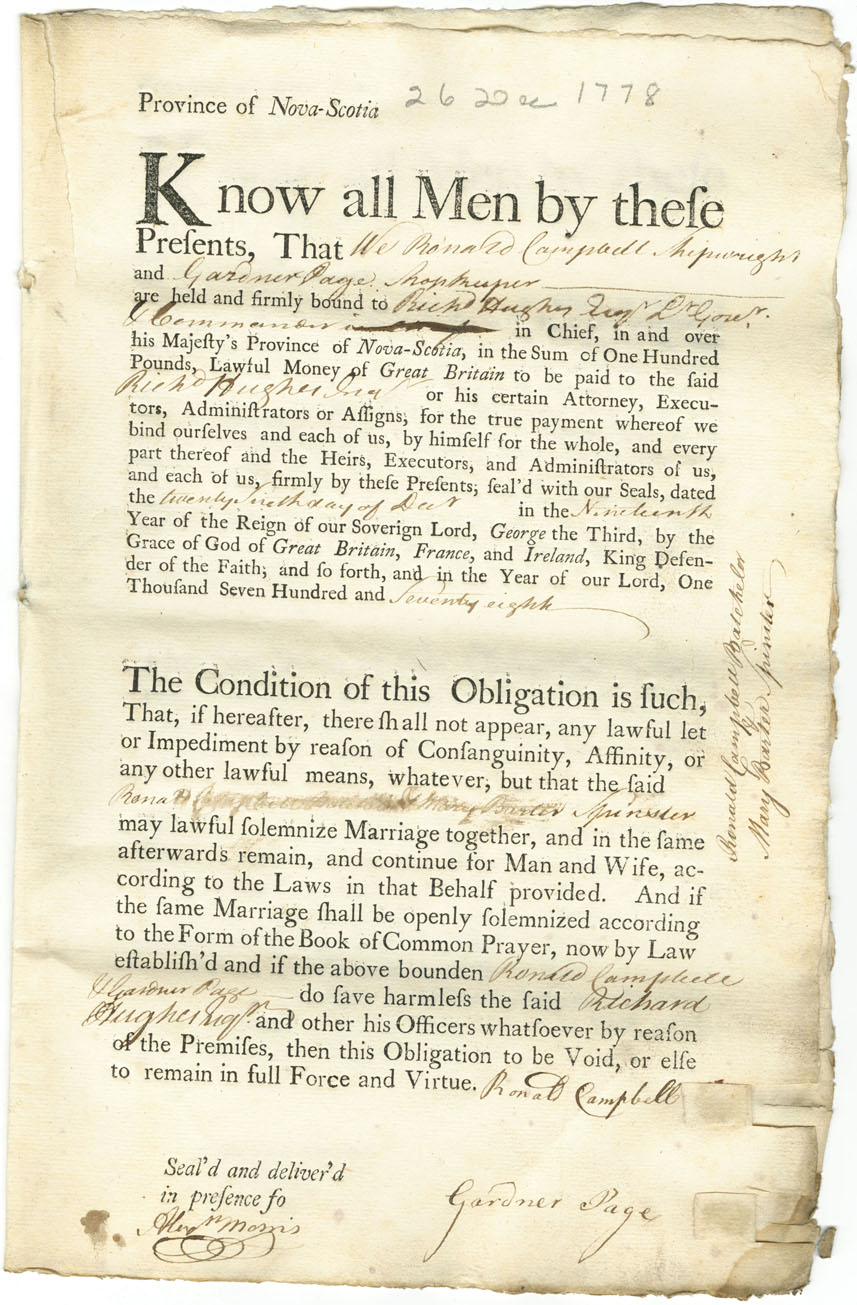 Province of Nova-Scotia 26 Dec 1778
Know all Men by theſe
Preſents, That We Ronald Campbell Shipwright
and Gardner Page Shopkeeper
are held and firmly bound to Richd Hughes Esqr Lt Govr.
& Commander in Chief, in and over
his Majeſty's Province of Nova-Scotia, in the Sum of One Hundred
Pounds, Lawful Money of Great Britain to be paid to the ſaid
Richd Hughes Esqr or his certain Attorney, Execu-
tors, Adminiſtrators or Aſſigns; for the true payment whereof we
bind ourſelves and each of us, by himſelf for the whole, and every
part thereof and the Heirs, Executors, and Adminiſtrators of us,
and each of us, firmly by theſe Preſents; ſeal'd with our Seals, dated
the twenty Sixth day of Decr in the Nineteenth
Year of the Reign of our Soverign Lord, George the Third, by the
Grace of God of Great Britain, France, and Ireland, King Defen-
der of the Faith; and ſo forth, and in the Year of our Lord, One
Thouſand Seven Hundred and Seventy eight
The Condition of this Obligation is ſuch,
That, if hereafter, there ſhall not appear, any lawful let
or Impediment by reaſon of Conſanguinity, Affinity, or
any other lawful means, whatever; but that the ſaid
Ronald Campbell Batchelor & Mary Barter Spinster
may lawful ſolemnize Marriage together, and in the ſame
afterwards remain, and continue for Man and Wife, ac-
cording to the Laws in that Behalf provided. And if
the ſame Marriage ſhall be openly ſolemnized according
to the Form of the Book of Common Prayer, now by Law
eſtabliſh'd and if the above bounden Ronald Campbell
& Gardner Page do ſave harmleſs the ſaid Richard
Hughes Esqr and other his Officers whatſoever by reaſon
of the Premiſes, then this Obligation to be Void, or elſe
to remain in full Force and Virtue. Ronald Campbell
Seal'd and deliver'd
in preſence fo
Morris
Gardner Page
Ronald Campbell Batchelor
&
Mary Barter Spinster